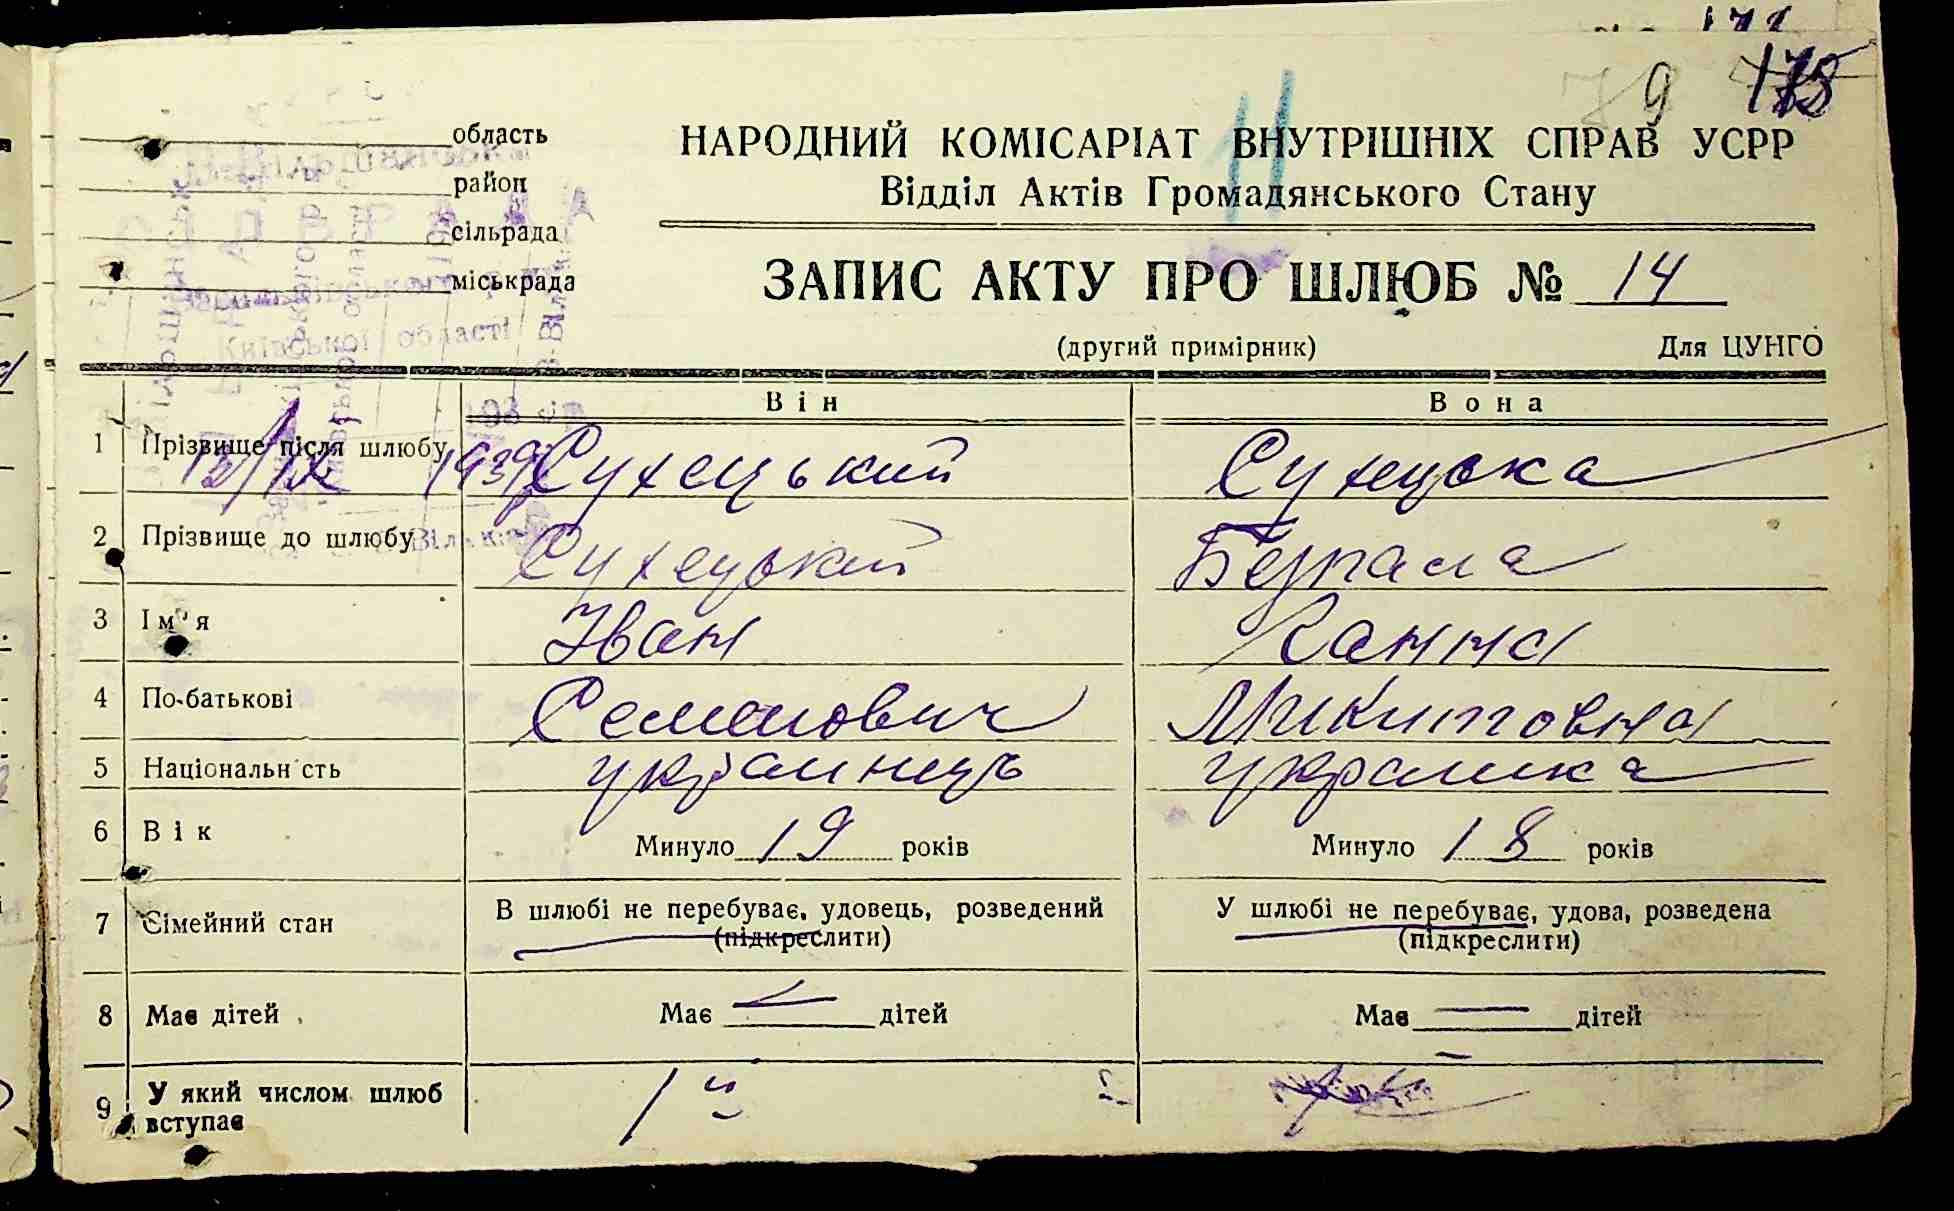 область
район
сільрада
міськрада
79
НАРОДНИЙ КОМІСАРІАТ ВНУТРІШНІХ СПРАВ УСРР
Відділ Актів Громадянського Стану
ЗАПИС АКТУ ПРО ШЛЮБ № 14
(другий примірник) Для ЦУНГО
Київської області
Він Вона
1 Прізвище після шлюбу Сухецький Сухецька
13/IX 1939
2 Прізвище до шлюбу Сухецький
3 Ім'я Іван Ганна
4 По-батькові Семенович Микитовна
5 Національність українець українка
6 Вік Минуло 19 років Минуло 18 років
7 Сімейний стан В шлюбі не перебуває, удовець, розведений У шлюбі не перебуває, удова, розведена
(підкреслити) (підкреслити)
8 Має дітей Має — дітей Має — дітей
9 У який числом шлюб вступає 1й